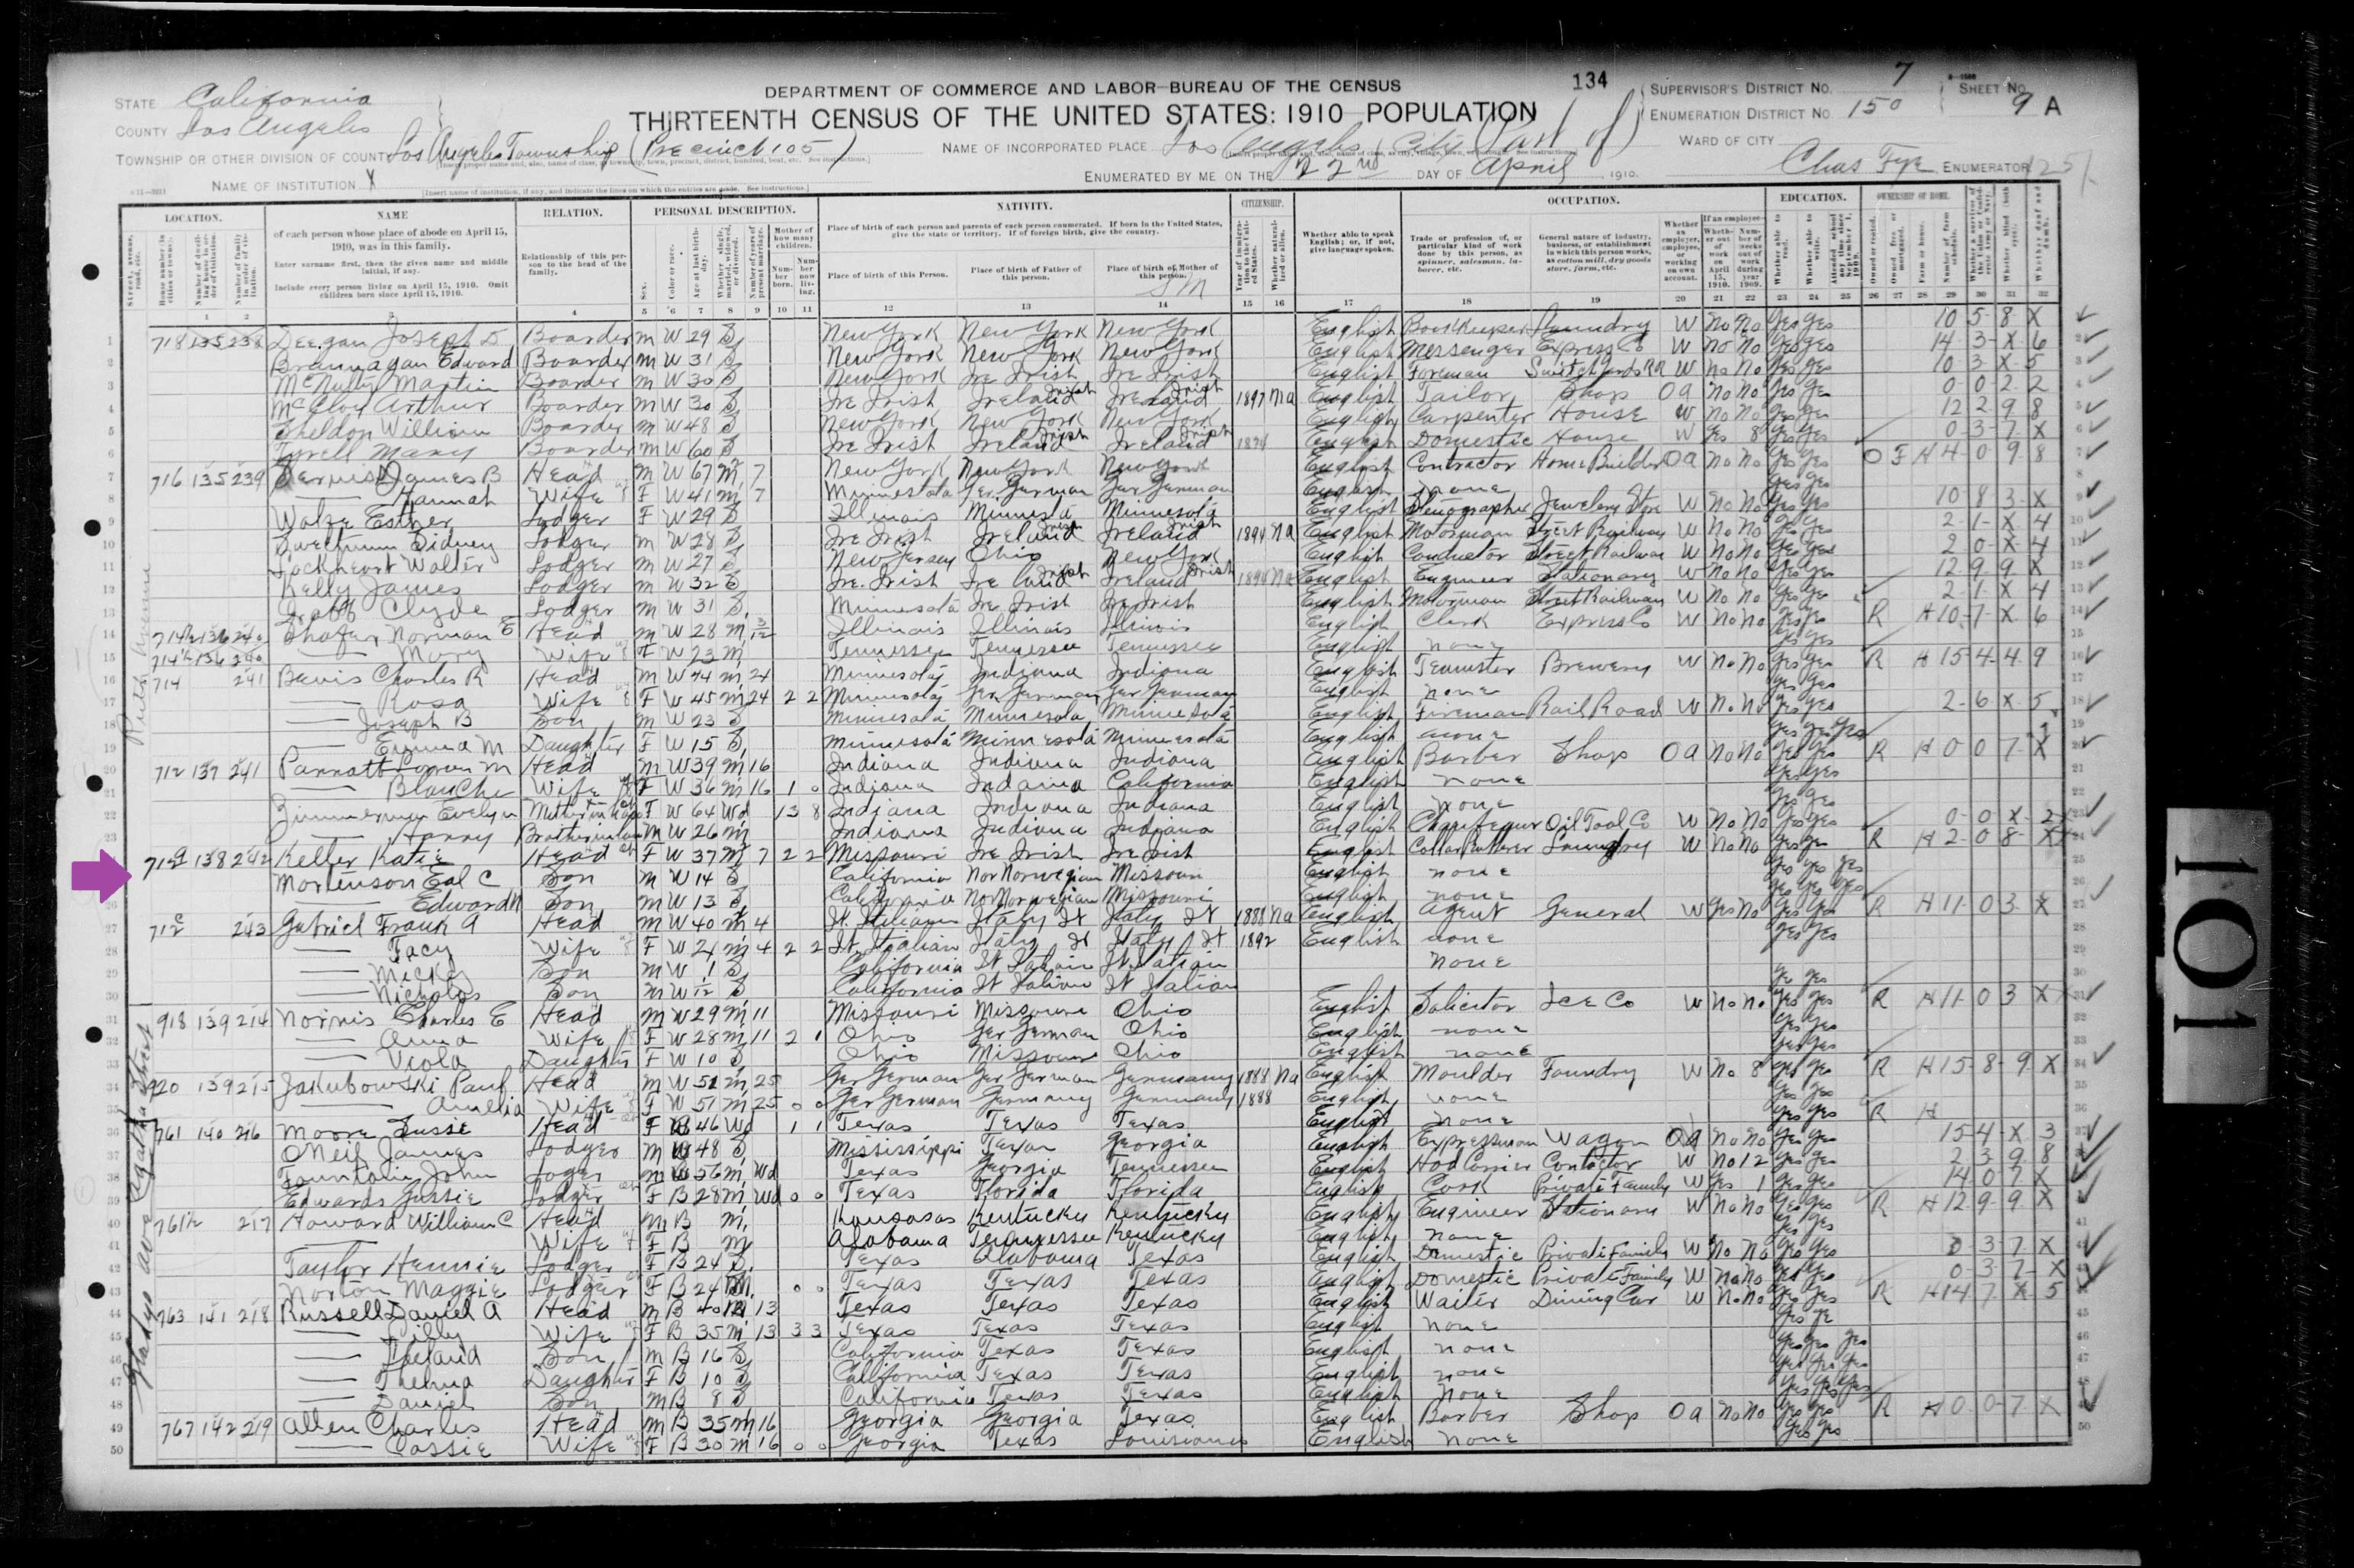 DEPARTMENT OF COMMERCE AND LABOR—BUREAU OF THE CENSUS
THIRTEENTH CENSUS OF THE UNITED STATES: 1910—POPULATION
134
STATE California
COUNTY Los Angeles
TOWNSHIP OR OTHER DIVISION OF COUNTY Los Angeles Township (Precinct 105)
NAME OF INSTITUTION X
NAME OF INCORPORATED PLACE Los Angeles City (Part of)
ENUMERATED BY ME ON THE 22nd DAY OF April, 1910.
SUPERVISOR'S DISTRICT NO. 7
ENUMERATION DISTRICT NO. 150
SHEET NO. 9 A
WARD OF CITY
Chas Fye, ENUMERATOR
LOCATION. NAME RELATION. PERSONAL DESCRIPTION. NATIVITY. CITIZENSHIP. OCCUPATION. EDUCATION. OWNERSHIP OF HOME.
of each person whose place of abode on April 15, 1910, was in this family.
Enter surname first, then the given name and middle initial, if any.
Include every person living on April 15, 1910. Omit children born since April 15, 1910.
Relationship of this person to the head of the family.
Place of birth of each person and parents of each person enumerated. If born in the United States, give the state or territory. If of foreign birth, give the country.
Place of birth of this Person. Place of birth of Father of this person. Place of birth of Mother of this person.
Whether able to speak English; or, if not, give language spoken.
Trade or profession of, or particular kind of work done by this person, as spinner, salesman, laborer, etc.
General nature of industry, business, or establishment in which this person works, as cotton mill, dry goods store, farm, etc.
1 718 135 238 Deegan Joseph D Boarder M W 29 S New York New York New York English Bookkeeper Laundry W No No Yes Yes 10 5 8 X
2 Brannagan Edward Boarder M W 31 S New York New York New York English Messenger Express Co W No No Yes Yes 14 3 X 6
3 McNulty Martin Boarder M W 30 S New York Ire Irish Ire Irish English Foreman Switchyards RR W No No Yes Yes 10 3 X 5
4 McCloy Arthur Boarder M W 30 S Ire Irish Ireland Irish Ireland Irish 1897 Na English Tailor Shop OA No No Yes Yes 0 0 2 2
5 Sheldon William Boarder M W 48 S New York New York New York English Carpenter House W No No Yes Yes 12 2 9 8
6 Tyrell Mary Boarder M W 60 S Ire Irish Ireland Irish Ireland Irish English Domestic House W Yes 8 Yes Yes 0 3 7 X
7 716 135 239 James B Head M W 67 M 7 New York New York New York English Contractor Home Builder OA No No Yes Yes O F H 4 0 9 8
8 Hannah Wife F W 41 M 7 Minnesota Ger German Ger German English None Yes Yes
9 Esther Lodger F W 29 S Illinois Minnesota Minnesota English Stenographer Jewelery Store W No No Yes Yes 10 8 3 X
10 Sidney Lodger M W 28 S Ire Irish Ireland Irish Ireland Irish 1894 Na English Motorman Street Railway W No No Yes Yes 2 1 X 4
11 Lockheart Walter Lodger M W 27 S New Jersey Ohio New York English Conductor Street Railway W No No Yes Yes 2 0 X 4
12 Kelly James Lodger M W 32 S Ire Irish Ireland Irish Ireland Irish Na English Engineer Stationary W No No Yes Yes 12 9 9 X
13 Clyde Lodger M W 31 S Minnesota Ire Irish Ire Irish English Motorman Street Railway W No No Yes Yes 2 1 X 4
14 714½ 136 240 Shafer Norman E Head M W 28 M 3/12 Illinois Illinois Illinois English Clerk Express Co W No No Yes Yes R H 10 7 X 6
15 714½ 136 240 Mary Wife F W 23 M Tennessee Tennessee Tennessee English None Yes Yes
16 714 241 Bevis Charles R Head M W 44 M 24 Minnesota Indiana Indiana English Teamster Brewery W No No Yes Yes R H 15 4 4 9
17 Rosa Wife F W 45 M 24 2 2 Minnesota Ger German Ger German English None Yes Yes
18 Joseph B Son M W 23 S Minnesota Minnesota Minnesota English Fireman Rail Road W No No Yes Yes 2 6 X 5
19 Emma M Daughter F W 15 S Minnesota Minnesota Minnesota English None Yes Yes Yes
20 712 137 241 Parrott M Head M W 39 M 16 Indiana Indiana Indiana English Barber Shop OA No No Yes Yes R H 0 0 7 X
21 Blanche Wife F W 36 M 16 1 0 Indiana Indiana California English None Yes Yes
22 Zimmerman Evelyn Mother in law F W 64 Wd 13 8 Indiana Indiana Indiana English None Yes Yes
23 Harry Brother in law M W 26 M Indiana Indiana Indiana English Chauffeur Oil Tool Co W No No Yes Yes 0 0 X 2
24 712 138 242 Keller Katie Head F W 37 M 7 2 2 Missouri Ire Irish Ire Irish English Laundry W No No Yes Yes R H 2 0 8 X
25 Mortenson Eal C Son M W 14 S California Nor Norwegian Missouri English None Yes Yes Yes
26 Edward N Son M W 13 S California Nor Norwegian Missouri English None Yes Yes Yes
27 712 243 Gabriel Frank A Head M W 40 M 4 It Italian Italy It Italy It 1888 Na English Agent General W Yes No Yes Yes R H 11 0 3 X
28 Tacy Wife F W 21 M 4 2 2 It Italian Italy It Italy It 1892 English None Yes Yes
29 Mickey Son M W 1 S California It Italian It Italian None
30 Nicholas Son M W S California It Italian It Italian
31 918 139 214 Norris Charles E Head M W 29 M 11 Missouri Missouri Ohio English Solicitor Ice Co W No No Yes Yes R H 11 0 3 X
32 Anna Wife F W 28 M 11 2 1 Ohio Ger German Ohio English None Yes Yes
33 Viola Daughter F W 10 S Ohio Missouri Ohio English None Yes Yes
34 920 139 215 Jakubowski Paul Head M W 51 M 25 Ger German Ger German Germany 1888 Na English Moulder Foundry W No 8 Yes Yes R H 15 8 9 X
35 Amelia Wife F W 51 M 25 0 0 Ger German Germany Germany 1888 English None Yes Yes
36 761 140 216 Moore Susie Head F B 46 Wd 1 1 Texas Texas Texas English None Yes Yes R H
37 ONeil James Lodger M 48 S Mississippi Texas Georgia English Expressman Wagon OA No No Yes Yes 15 4 X 3
38 Fountain John Loger M 56 M Wd Texas Georgia Tennessee English Hod Carrier Contractor W No 12 Yes Yes 2 3 9 8
39 Edwards Jussie Lodger F B 28 M Wd 0 0 Texas Florida Florida English Cook Private Family W Yes 1 Yes Yes 14 0 7 X
40 761½ 217 Howard William C Head M B M Kansas Kentucky Kentucky English Engineer Stationary W No No Yes Yes R H 12 9 9 X
41 Wife F B M Alabama Tennessee Kentucky English None Yes Yes
42 Taylor Hennie Lodger F B 24 S Texas Alabama Texas English Domestic Private Family W No No Yes Yes 0 3 7 X
43 Norton Maggie Lodger F B 24 M 0 0 Texas Texas Texas English Domestic Private Family W No No Yes Yes 0 3 7 X
44 763 141 218 Russell Daniel A Head M B 40 M 13 Texas Texas Texas English Waiter Dining Car W No No Yes Yes R H 14 7 X 5
45 Lilly Wife F B 35 M 13 3 3 Texas Texas Texas English None Yes Ye
46 Leland Son M B 16 S California Texas Texas English None Yes Yes Yes
47 Thelma Daughter F B 10 S California Texas Texas English None Yes Yes Yes
48 Daniel Son M B 8 S California Texas Texas English None Yes Yes Yes
49 767 142 219 Allen Charles Head M B 35 M 16 Georgia Georgia Texas English Barber Shop OA No No Yes Yes R H 0 0 7 X
50 Cassie Wife F B 30 M 16 0 0 Georgia Texas Louisiana English None Yes Yes
Ruth Avenue
Gladys Ave
Agatha Street
101